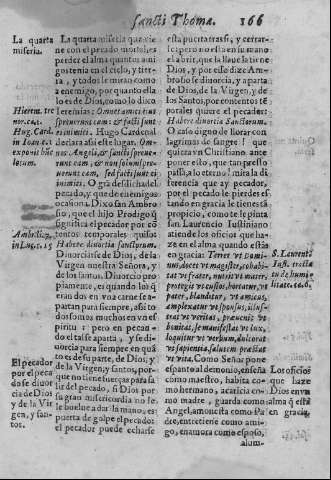 Sancti Thomæ. 166
La quarta
miseria.
La quarta miseria que vie
ne con el pecado mortal, es
perder el alma quantos ami
gos tenia en el cielo, y tier-
ra, y todos le miran como
a enemigo, por quanto ella
lo es de Dios, como lo dixo
Ieremias: Omnes amici eius
spreuerunt eam: & facti sunt
ei inimici. Hugo Cardenal
declara assi este lugar. Om-
nes Angeli, & sancti spreue-
runt eam, & non solum spre-
uerunt eam, sed facti sunt ei
inimici. O gran desdicha del
pecado, y que de enemigos
ocasiona. Dixo san Ambro
sio, que el hijo Prodigo
significa el pecador por
contentos temporales
Habere diuortia sanctorum.
Diuorciarse de Dios, de la
Virgen nuestra Señora, y
de los santos. Diuorcio pro
piamente, es quando los
eran dos en vna carne se a-
partan para siempre, assi to
dos somos muchos en vn es
piritu: pero en pecado
el tal se aparta, y se di-
uorcia para siempre en quã
to es de su parte, de Dios, y
de la Virgen, y santos, por-
que no tiene fuerças para sa
lir del pecado, si Dios por
su gran misericordia no le
le buelue a dar la mano, es
puerta de golpe el pecado:
el pecador puede echarse
Hierem. tre
Hug. Card.
Ambros.
in Luc. c. 15
El pecador
por el peca
do se diuor
cia de Dios
y de la Vir
gen, y san-
tos.
esta puerta tras si, y cerrar-
se: pero no està en su mano
el abrir, que la llaue la tiene
Dios, y por esso dize Am-
brosio se diuorcia, y aparta
de Dios, de la Virgen, y de
los Santos, por contentos tẽ
porales quiere el pecador:
Habere diuortia Sanctorum.
O caso digno de llorar con
lagrimas de sangre! que
quiera vn Christiano ante
poner esto, que tan presto
passa, a lo eterno! mira la di
ferencia que ay pecador,
por el pecado le pierdes es-
tando en gracia le tienes tã
propicio, como te le pinta
san Laurencio Iustiniano
atiende los oficios que ha-
ze en el alma quando està
en gracia: Terret vt Domi-
nus, docet vt magister, cohabi-
tat vt frater, nutrit vt mater,
protegit vt custos, hortatur, vt
pater, blanditur, vt amicus,
amplexatur vt sponsus, illus-
trat vt veritas, præuenit vt
bonitas, se manifestat vt lux,
loquitur vt verbum, dulcorat
vt sapientia, saluat, præstat
vt vita. Como Señor pone
espanto al demonio, enseña
como maestro, habita co-
mo hermano, acaricia co-
mo madre, guarda como
Angel, amonesta como Pa
dre, entretiene como ami-
go, enamora como esposo,
alum-
S. Laurenti
Iust. tracta
tu de humi
litate. ca. 6.
Los oficios
que haze
Dios en vn
alma q està
en gracia.